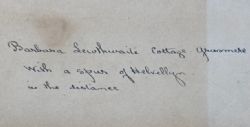 Barbara Lewthwaite Cottage Grasmere
With a spur of Helvellyn
in the distance